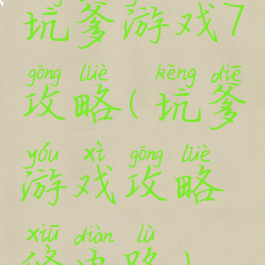 坑爹游戏7
gōng lüè kēng diē
攻略(坑爹
yóu xì gōng lüè
游戏攻略
xiū diàn lù
修电路)